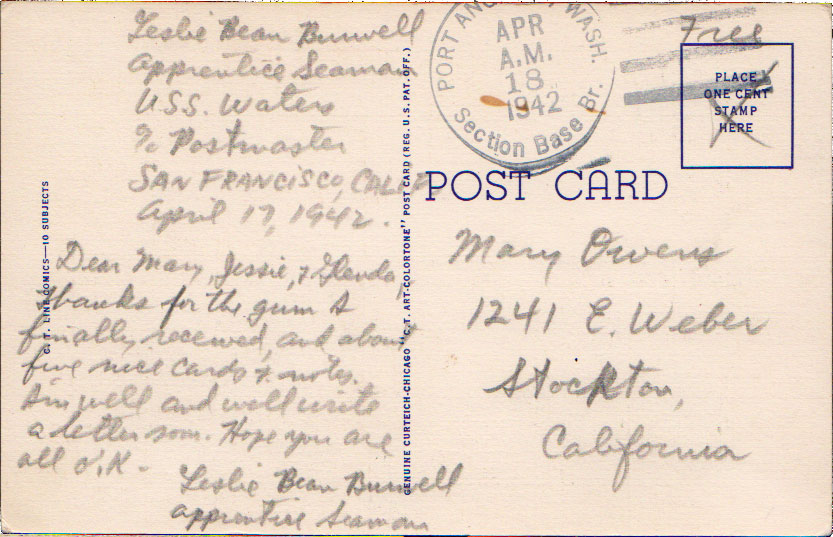 Leslie Bean Burwell
Apprentice Seaman
U.S.S. Waters
% Postmaster
SAN FRANCISCO, CALIF.
April 17, 1942.
Dear Mary, Jessie, & Glenda
Thanks for the gum I
finally received, and about
five nice cards & notes.
Am well and will write
a letter soon. Hope you are
all O.K.
Leslie Bean Burwell
Apprentice Seaman
C. T. LINE COMICS—10 SUBJECTS
GENUINE CURTEICH-CHICAGO "C. T. ART-COLORTONE" POST CARD (REG. U. S. PAT. OFF.)
PORT WASH.
APR
A.M.
18
1942
Section Base Br.
Free
PLACE
ONE CENT
STAMP
HERE
POST CARD
Mary Owens
1241 E. Weber
Stockton,
California